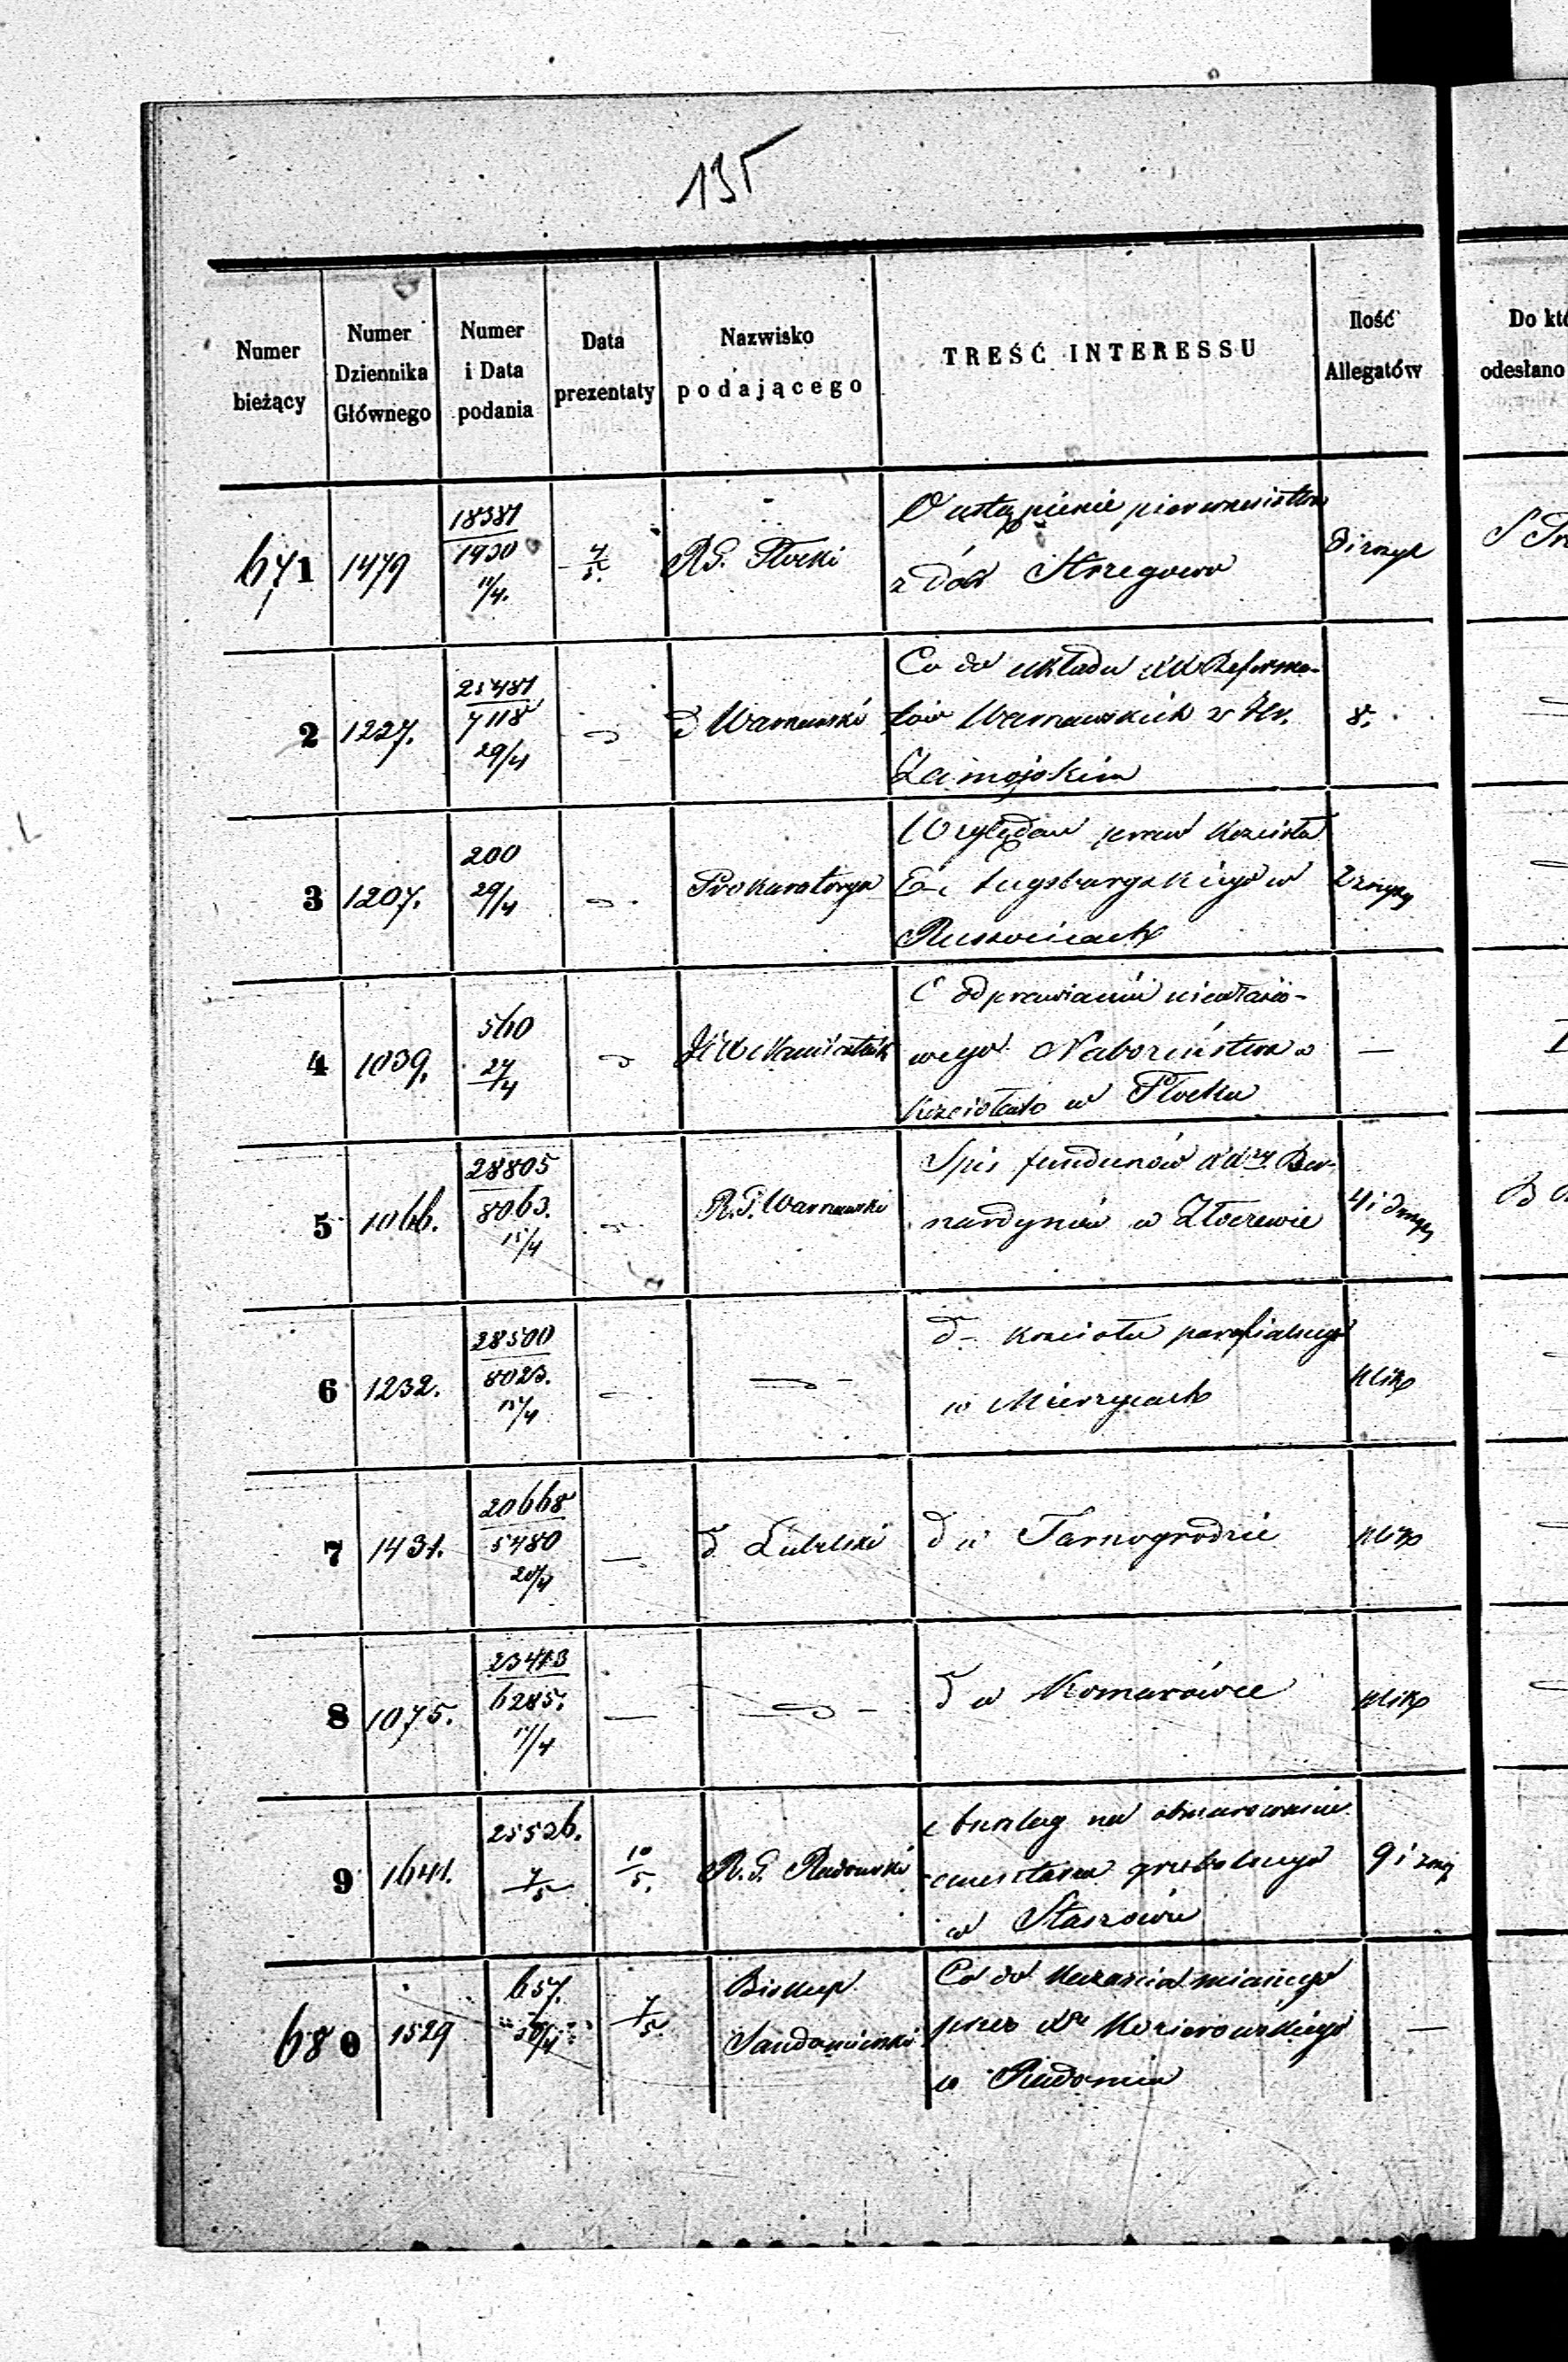 135
Numer bieżący
Numer Dziennika Głównego
Numer i Data podania
Data prezentaty
Nazwisko podającego
TREŚĆ INTERESSU
Ilość Allegatów
Do któ
odesłano
671 1479 18381 1930 11/4. 4/5. R.G. Płocki
O ustąpienie pierwszeństwa
z dóbr Strzegowo
2 1227. 7118 29/4 d Warszawski 8.
Co do układu XX Reforma-
tów Warszawskich z Hr.
Zamojskim
3 1207. 200 29/4 Prokuratorya
Względem praw Kościoła
Ew. Augsburgskiego w
Russocicach
4 1039. 560 27/4 —
O odprawianiu niewłaści-
wego Nabożeństwa w
kościołach w Płocku
5 1066. 28805 8063. 15/4 R.G. Warszawski
Spis funduszów XX Ber-
nardynów w Złoczewie
6 1232. 28500 8023. 15/4 plik
d- kościoła parafialnego
w Mierzycach
7 1431. 20668 5480 20/4 — d Lubelski d w Tarnogrodzie plik
8 1075. 23413 6285. 11/4 — d w Komarówce plik
9 1641. 25526. 7/5 10/5. R.G. Radomski
na obmurowanie
cmentarza grzebalnego
w Staszowie
680 1529 657. 30/4 7/5. Biskup
Sandomierski —
Co do kazania mianego
przez X Kozierowskiego
w Radomiu